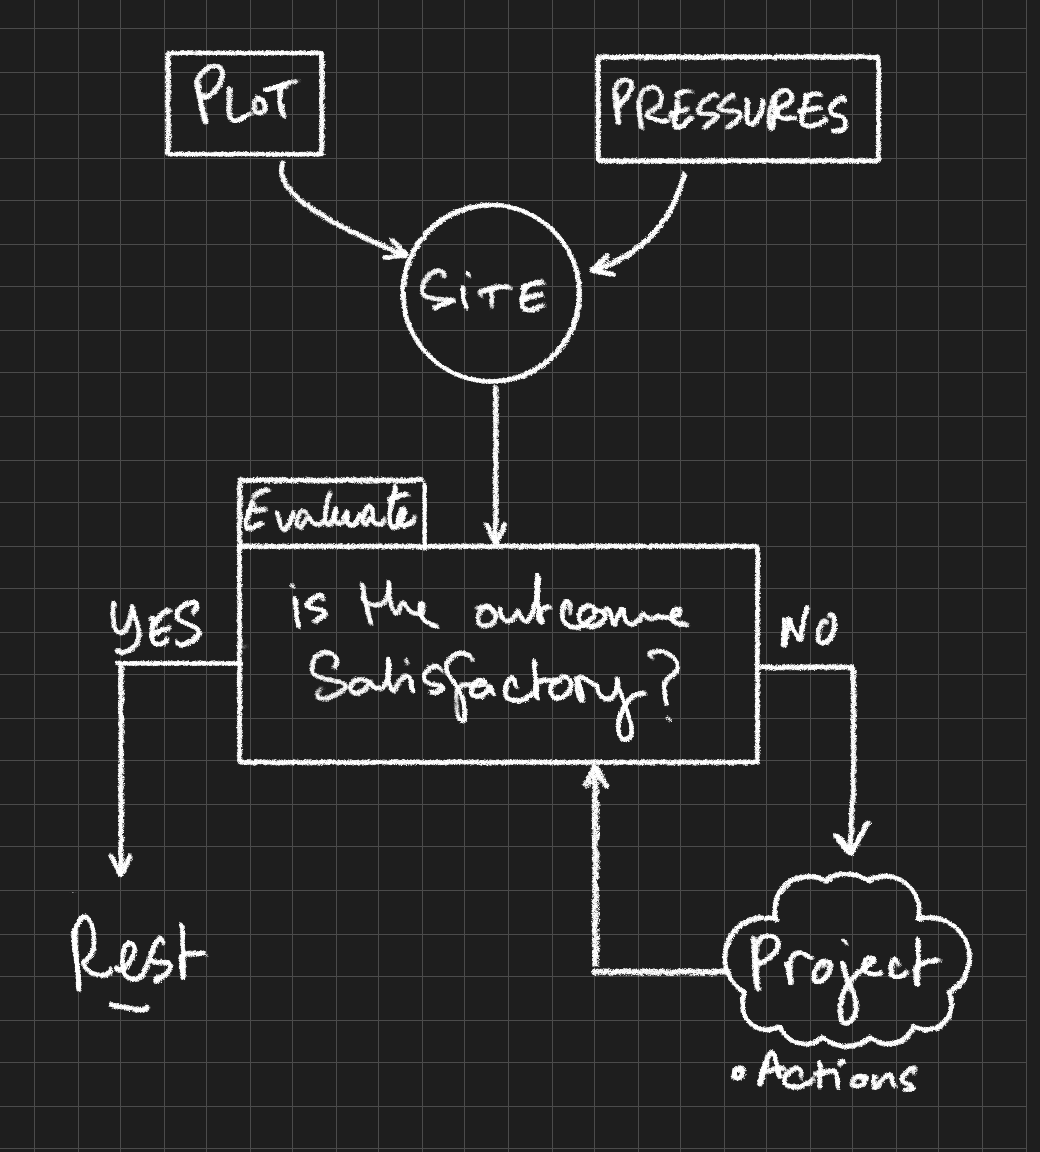 PLOT
PRESSURES
SiTE
Evaluate
is the outcome
Satisfactory?
YES
NO
Rest
Project
• Actions